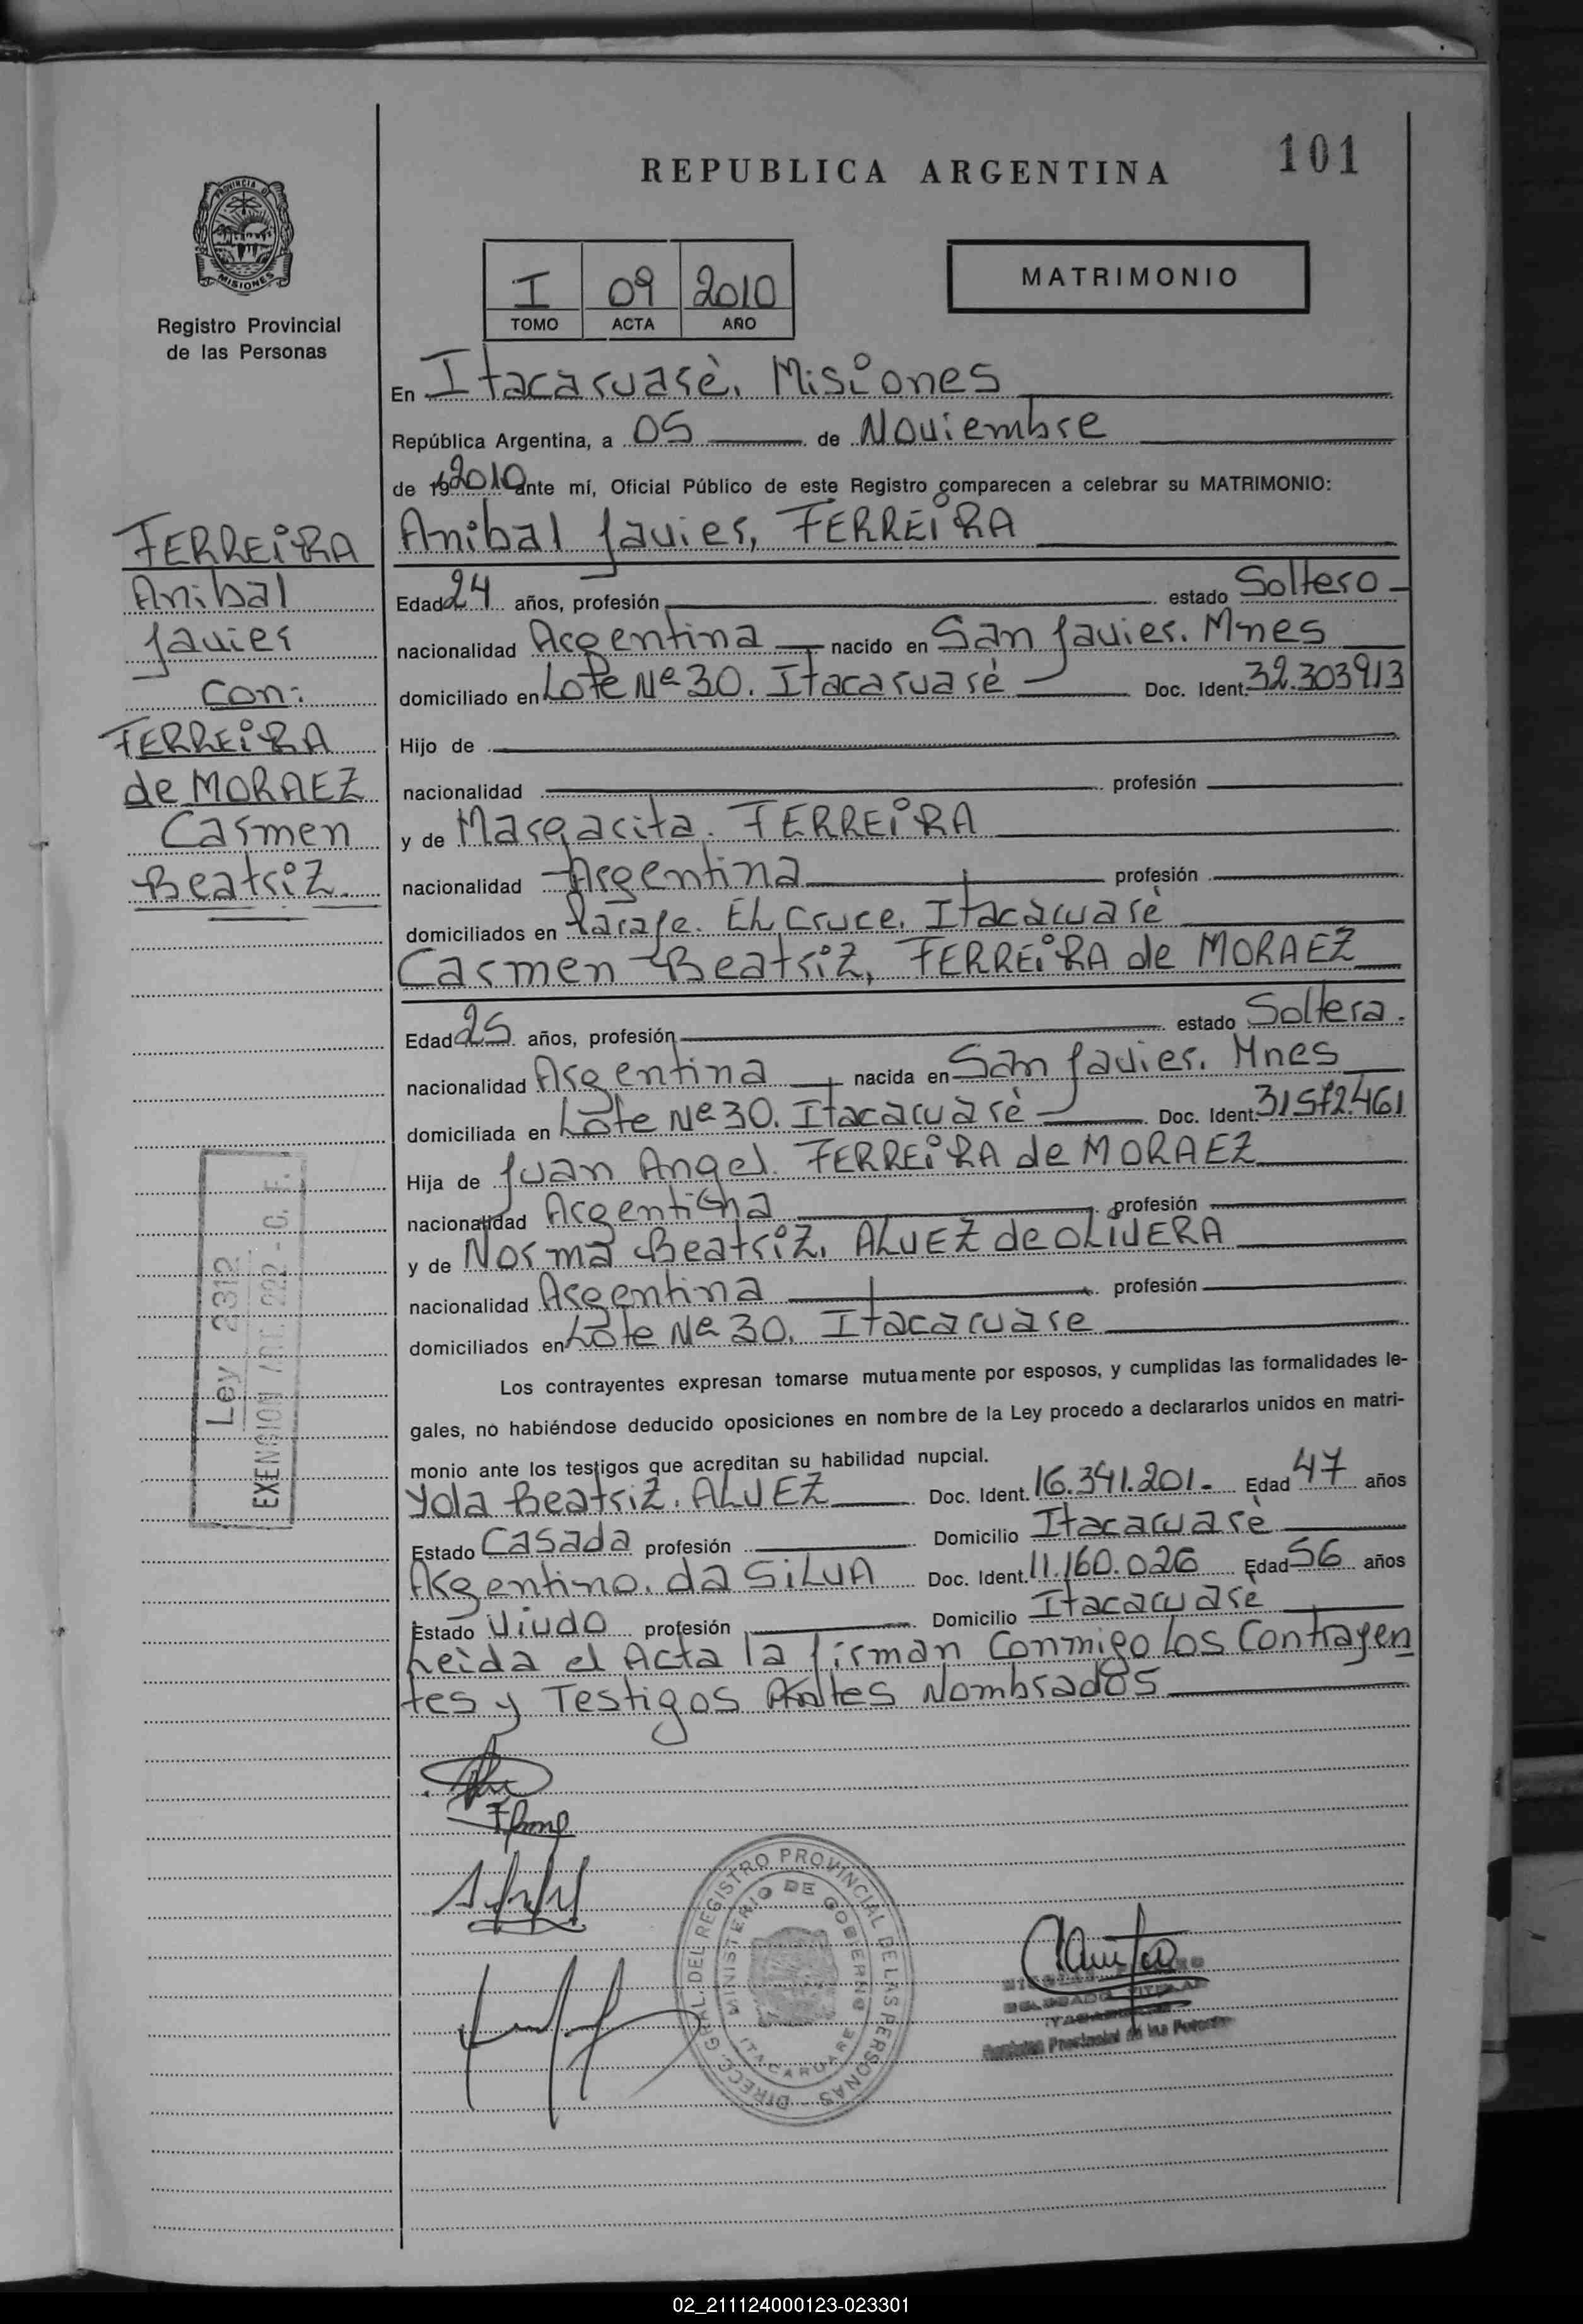 101
REPUBLICA ARGENTINA
PROVINCIA DE
MISIONES
Registro Provincial
de las Personas
I 09 2010
TOMO ACTA AÑO
MATRIMONIO
En Itacaruarè. Misiones
República Argentina, a 05 de Noviembre
de 19 2010 ante mí, Oficial Público de este Registro comparecen a celebrar su MATRIMONIO:
Anibal Javier, FERREiRA
FERREiRA
Anibal
Javier
con:
FERREiRA
de MORAEZ
Carmen
Beatriz.
Edad 24 años, profesión estado Soltero
nacionalidad Argentina nacido en San Javier. Mnes
domiciliado en Lote Nº 30. Itacaruarè Doc. Ident. 32.303913
Hijo de
nacionalidad profesión
y de Margarita. FERREiRA
nacionalidad Argentina profesión
domiciliados en Paraje. EL Cruce. Itacàruarè
Carmen Beatriz, FERREiRA de MORAEZ
Edad 25 años, profesión estado Soltera.
nacionalidad Argentina nacida en San Javier. Mnes
domiciliada en Lote Nº 30. Itacaruarè Doc. Ident. 31572.461
Hija de Juan Angel. FERREiRA de MORAEZ
nacionalidad Argentina profesión
y de Norma Beatriz. ALVEZ de OLiVERA
nacionalidad Argentina profesión
domiciliados en Lote Nº 30. Itacaruare
Ley 2312
EXENCION ART. 222 - C. F.
Los contrayentes expresan tomarse mutuamente por esposos, y cumplidas las formalidades le-
gales, no habiéndose deducido oposiciones en nombre de la Ley procedo a declararlos unidos en matri-
monio ante los testigos que acreditan su habilidad nupcial.
Yola Beatriz. ALVEZ Doc. Ident. 16.341.201.- Edad 47 años
Estado Casada profesión Domicilio Itacaruarè
Argentino. da SiLVA Doc. Ident. 11.160.026 Edad 56 años
Estado Viudo profesión Domicilio Itacaruarè
Leida el Acta la firman Conmigo los Contrayen
tes y Testigos Antes Nombrados
DIRECC. GRAL. DEL REGISTRO PROVINCIAL DE LAS PERSONAS
MINISTERIO DE GOBIERNO
ITACARUARE
DELEGADO TITULAR
Registro Provincial de las Personas
02_211124000123-023301